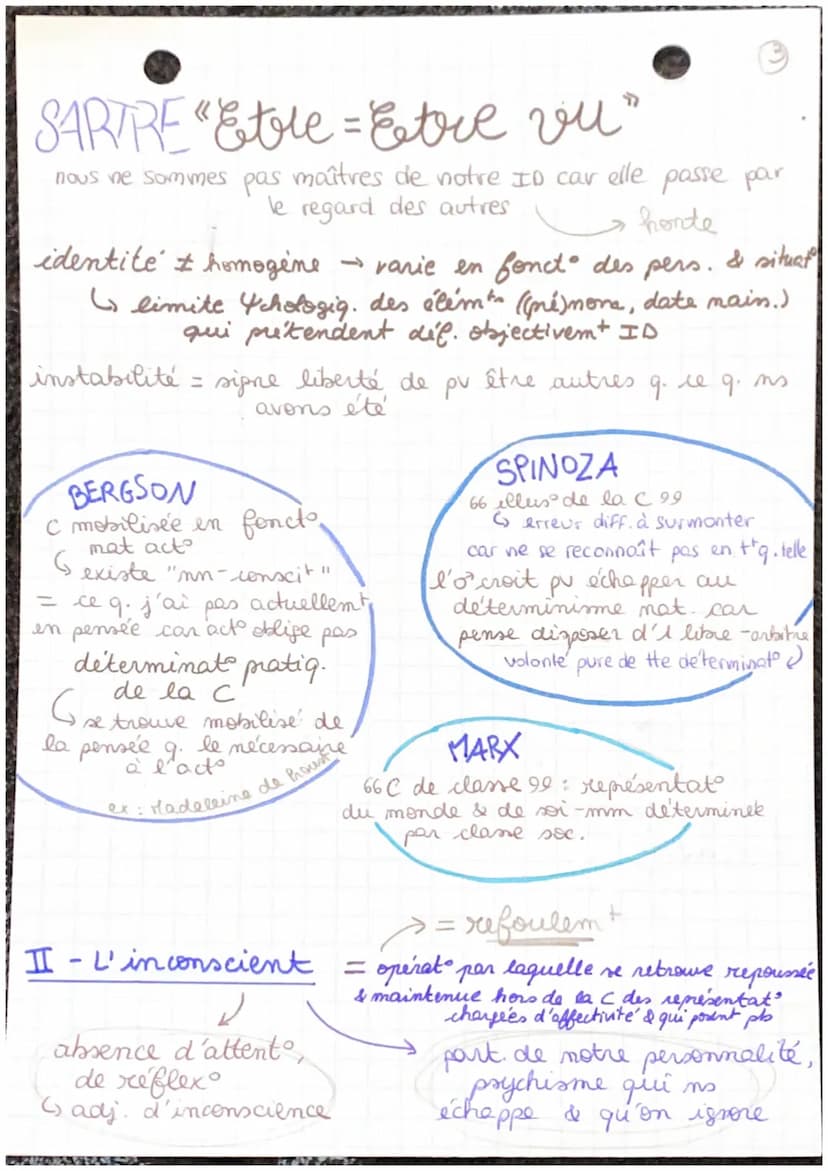 3
SARTRE "Etre = Etre vu"
nous ne sommes pas maîtres de notre ID car elle passe par
le regard des autres
→ honte
identité ≠ homogène → varie en fonct° des pers. & situat°
↳ limite Ψchologiq. des élém^ts ((pré)noms, date naiss.)
qui prétendent déf. objectivem^t ID
instabilité = signe liberté de pv être autres q. ce q. ns
avons été
BERGSON
C mobilisée en fonct°
mat act°
↳ existe "nn-conscit"
= ce q. j'ai pas actuellem^t
en pensée car act° oblige pas
déterminat° pratiq.
de la C
↳ se trouve mobilisé de
la pensée q. le nécessaire
à l'act°
ex : Madeleine de Proust
SPINOZA
66 illus° de la C 99
↳ erreur diff. à surmonter
car ne se reconnaît pas en t^t q. telle
croit pv échapper au
déterminisme mat. car
pense disposer d'1 libre-arbitre
volonté pure de tte déterminat°
MARX
66 C de classe 99 : représentat°
du monde & de soi-mm déterminée
par classe soc.
→ = refoulem^t
II - L'inconscient
= opérat° par laquelle se retrouve repoussée
& maintenue hors de la C des représentat°
chargées d'affectivité & qui posent pb
absence d'attent°,
de réflex°
↳ adj. d'inconscience
part. de notre personnalité,
psychisme qui ns
échappe & qu'on ignore